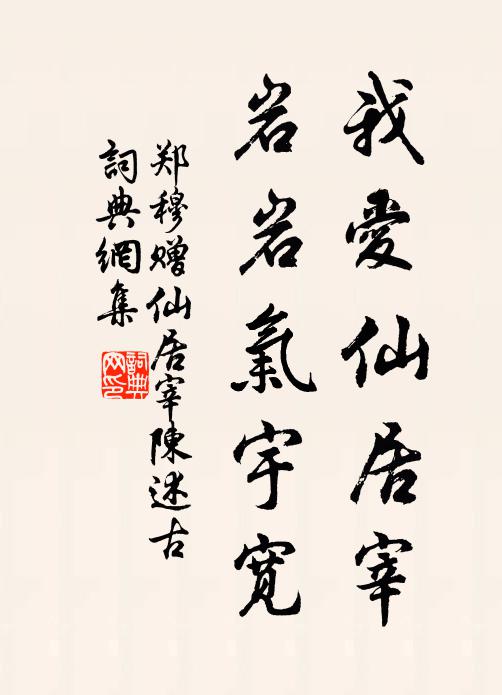 我愛仙居宰
岩岩氣宇寬
郑穆赠仙居宰陳述古
詞典網集
詞典网印